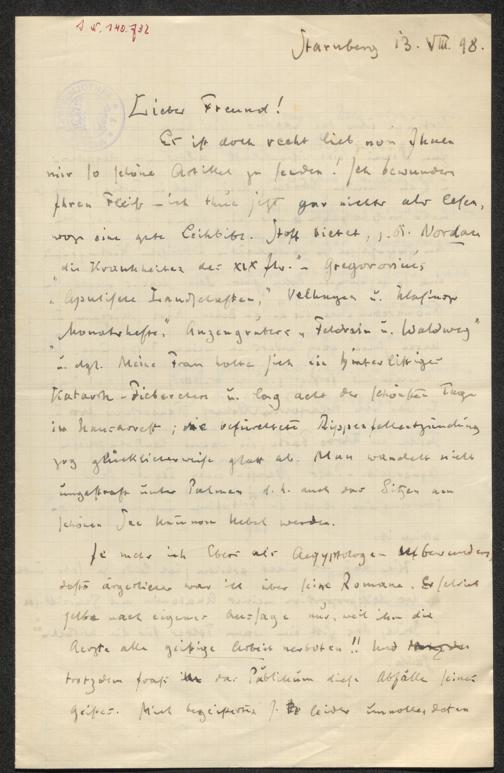 I. N. 140.732
Starnberg 13. VIII. 98.
Lieber Freund!
Es ist doch recht lieb von Ihnen
mir so schöne Artikel zu senden! Ich bewundere
Ihren Fleiß – ich thue jetzt gar nichts als lesen,
wozu eine gute Leihbibl. Stoff bietet, z. B. Nordau
„die Krankheiten des XIX Jhr.“ – Gregorovius
„Apulische Landschaften“, Velhagen u. Klasings
„Monatshefte“, Anzengrubers „Feldrain u. Waldweg“
u. dgl. Meine Frau holte sich ein
Katarrh-Fieberchen u. lag acht der schönsten Tage
im Hausarrest; die befürchtete Rippenfellentzündung
zog glücklicherweise glatt ab. Man wandelt nicht
ungestraft unter Palmen d. h. auch das Sitzen am
schönen See kann Uebel werden.
Je mehr ich Ebers als Aegyptologen bewundere,
desto ärgerlicher war ich über seine Romane. Er schrieb
selbe nach eigener Aussage nur, weil ihm die
Aerzte alle geistige Arbeit verboten!! Und
trotzdem fraß das Publikum diese Abfälle seines
Geistes. Mich leider unvollendeten